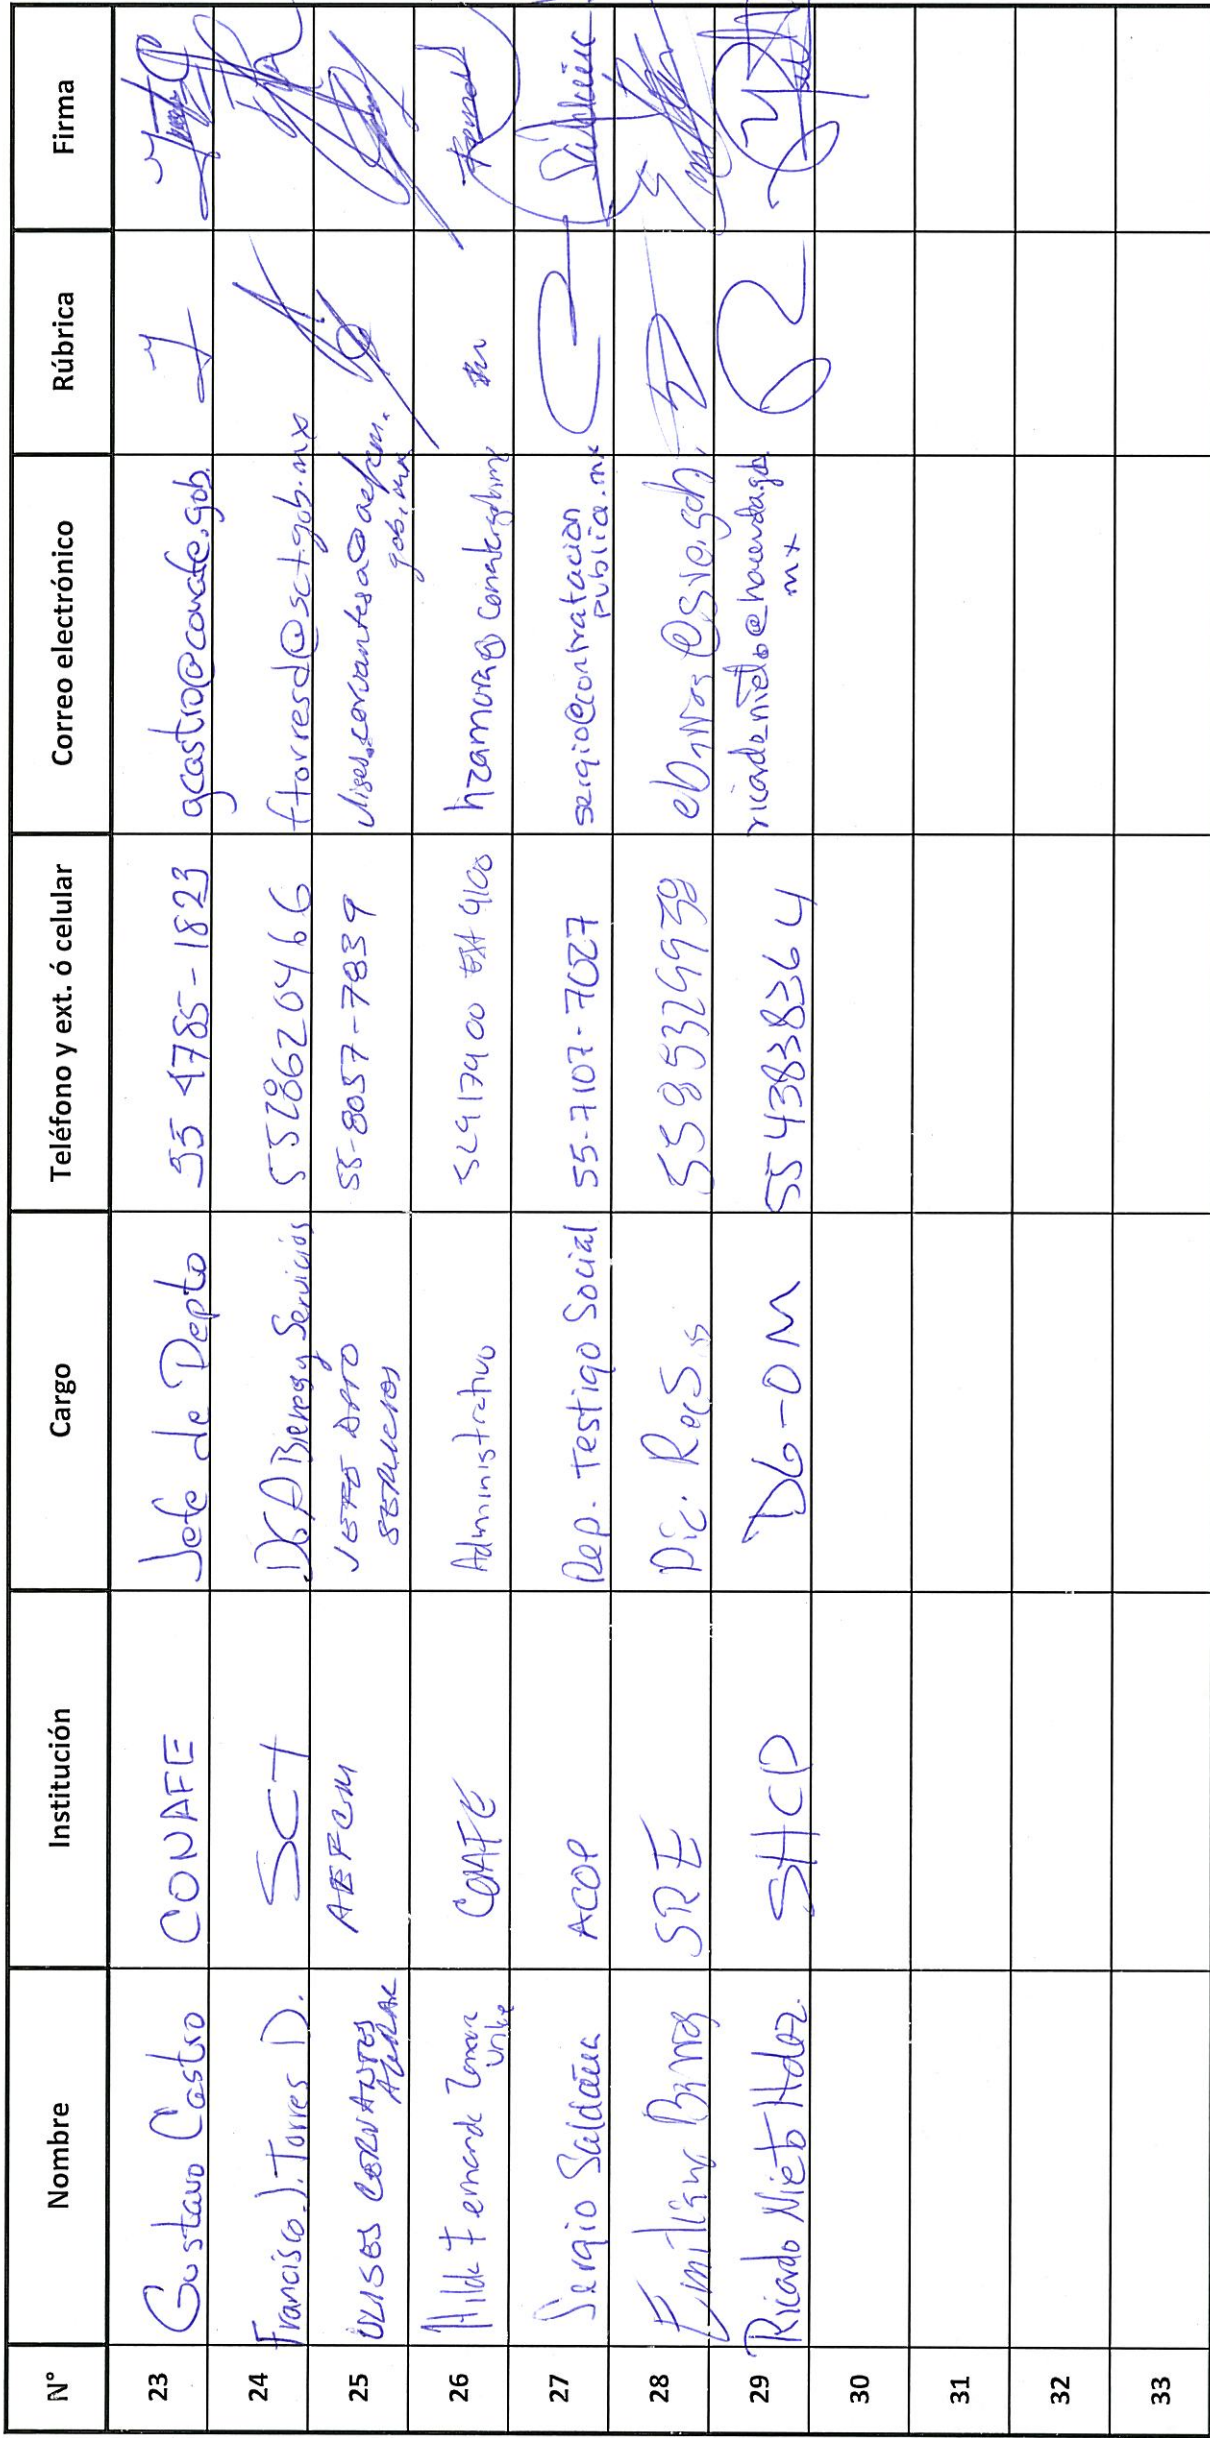 N° Nombre Institución Cargo Teléfono y ext. ó celular Correo electrónico Rúbrica Firma
23 Gustavo Castro CONAFE Jefe de Depto 55 4785-1823 gcastro@conafe.gob.
24 Francisco J. Torres D. SCT DGA Bienes y Servicios 5528620466 ftorresd@sct.gob.mx
25 ULISES CERVANTES AEFCM JEFE DPTO 55-8057-7839 ulises.cervantesa@aefcm.
SERVICIOS gob.mx
26 Hilda Fernanda Zamora Administrativo 52917400 Ext 9100
Uribe
27 Sergio Saldaña ACOP Rep. Testigo Social 55-7107-7027 sergio@contratacion
publica.mx
28 Emiliano SRE 5585329938
29 Ricardo Nieto Hdez. SHCP DG-OM 5543838364 ricardo_nieto@hacienda.gob
mx
30
31
32
33